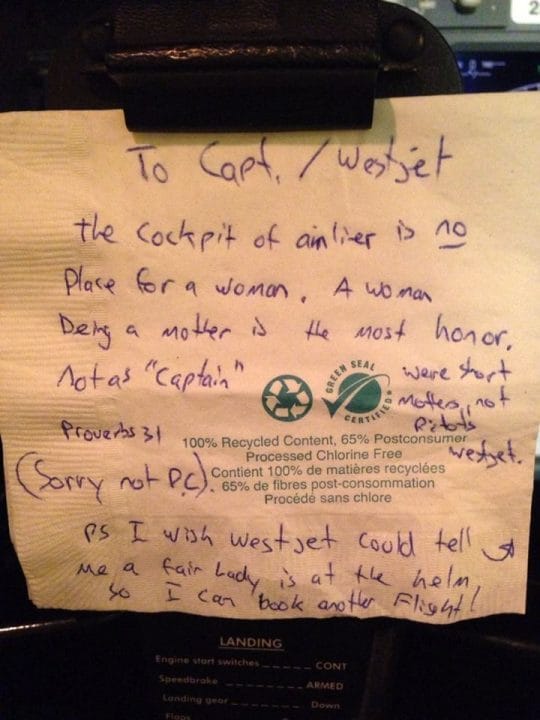 2
To Capt. / Westjet
the cockpit of airliner is no
Place for a woman. A woman
Being a mother is the most honor.
Not as "Captain"
were short
mothers, not
Pilots
westjet.
Proverbs 31
(Sorry not P.C.).
GREEN SEAL
CERTIFIED
100% Recycled Content, 65% Postconsumer
Processed Chlorine Free
Contient 100% de matières recyclées
65% de fibres post-consommation
Procédé sans chlore
PS I wish westjet could tell
me a fair lady is at the helm
so I can book another Flight!
LANDING
Engine start switches _ _ _ _ _ CONT
Speedbrake _ _ _ _ _ ARMED
Landing gear _ _ _ _ _ Down
Flaps